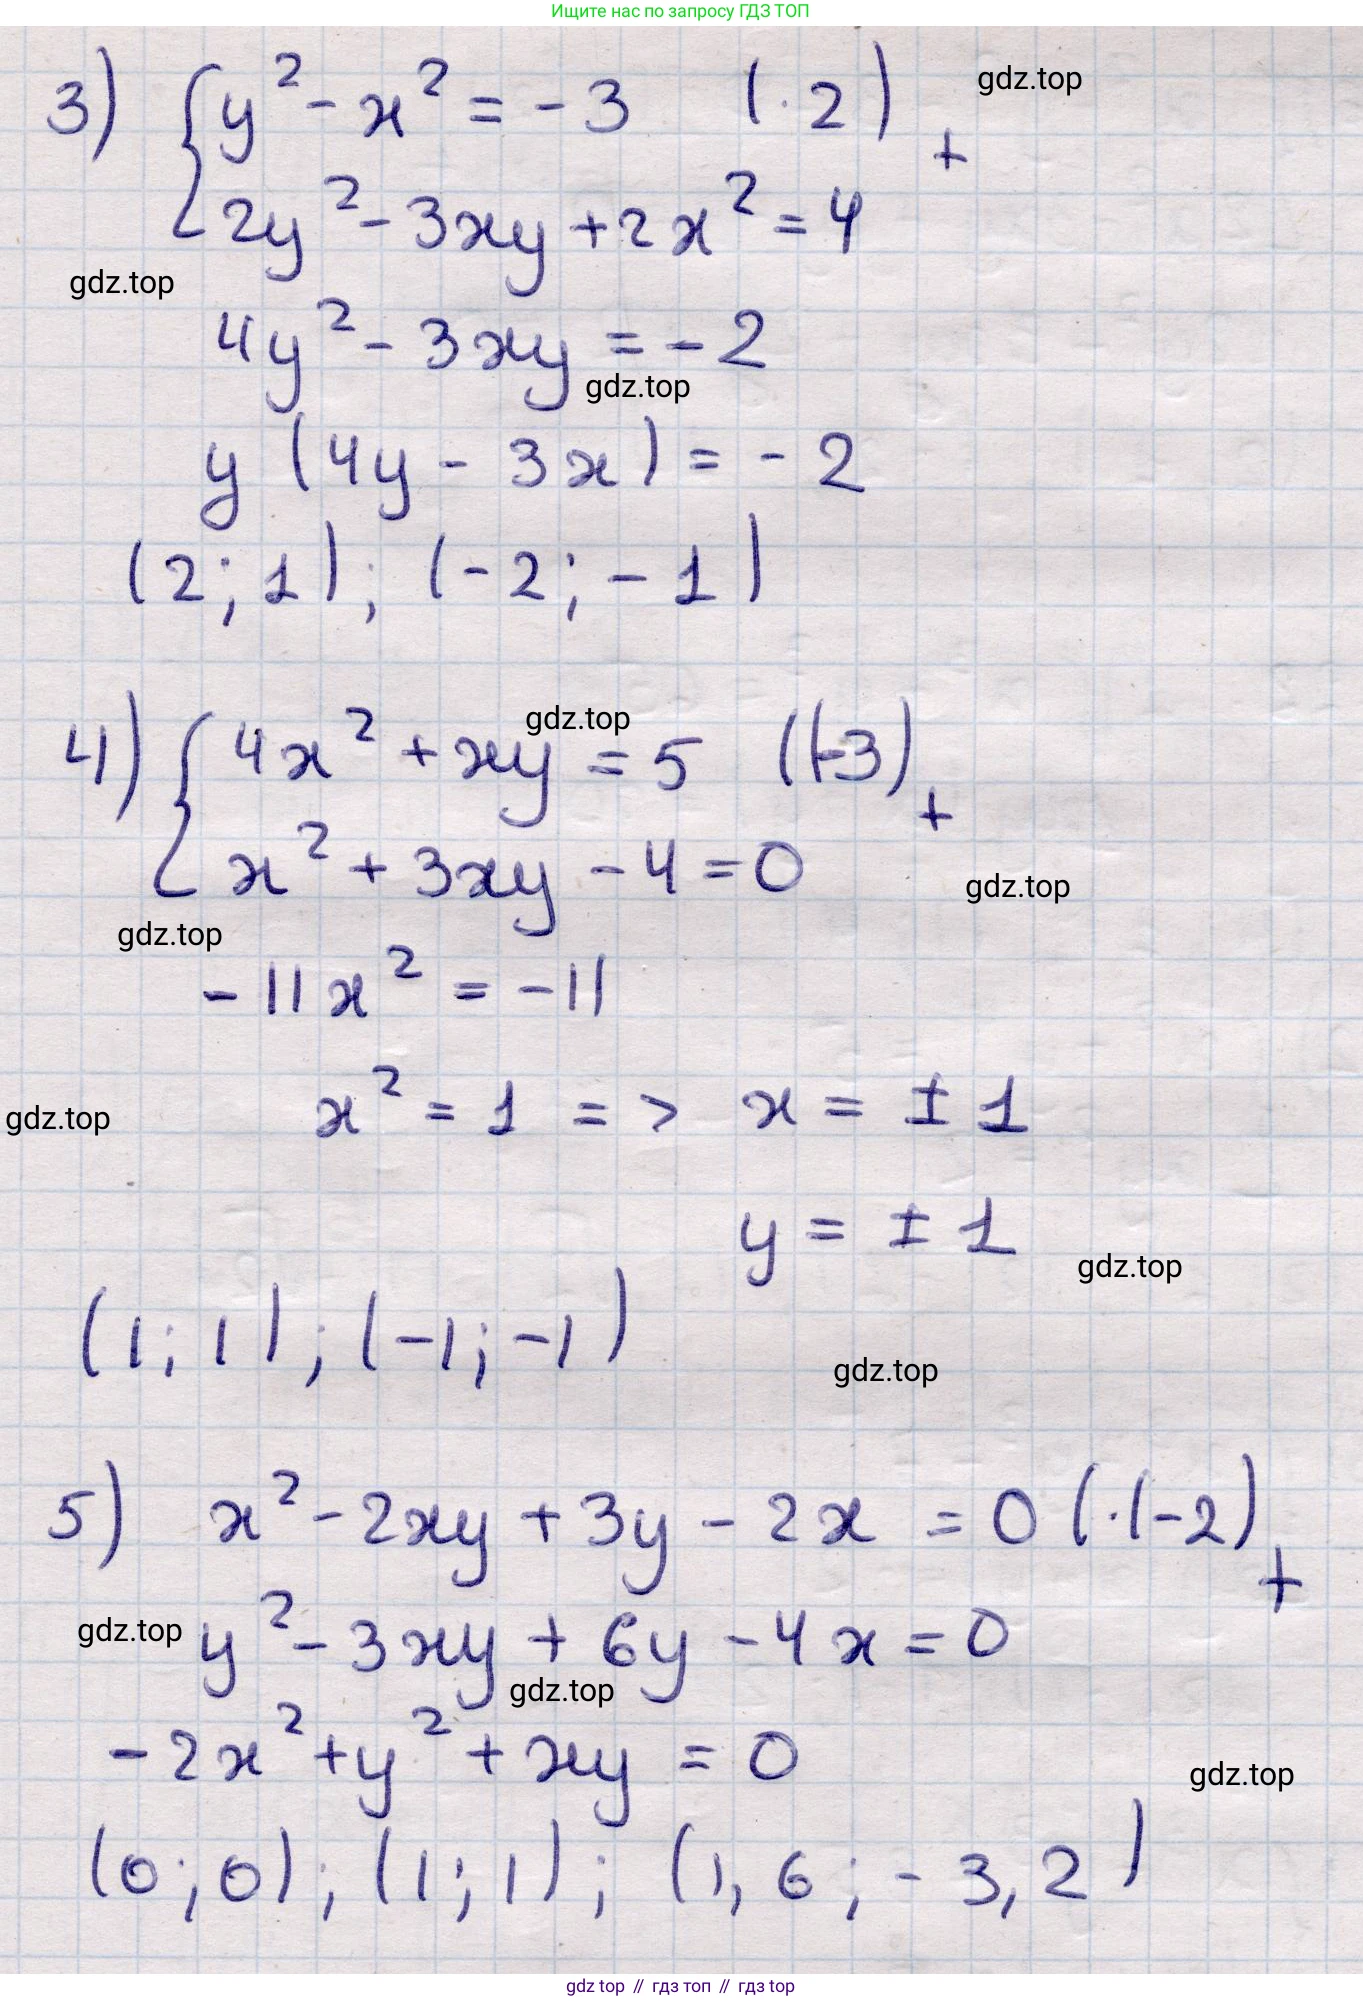 Ищите нас по запросу ГДЗ ТОП
3) { y² - x² = -3 (·2)
gdz.top
+
2y² - 3xy + 2x² = 4
gdz.top
4y² - 3xy = -2
gdz.top
y (4y - 3x) = -2
(2; 1); (-2; -1)
gdz.top
4) { 4x² + xy = 5 ((-3)
+
x² + 3xy - 4 = 0
gdz.top
gdz.top
-11x² = -11
gdz.top
x² = 1 => x = ± 1
y = ± 1
gdz.top
(1; 1); (-1; -1)
gdz.top
5) x² - 2xy + 3y - 2x = 0 (·(-2)
+
gdz.top
y² - 3xy + 6y - 4x = 0
gdz.top
-2x² + y² + xy = 0
gdz.top
(0; 0); (1; 1); (1,6; -3,2)
gdz top // гдз топ // gdz top